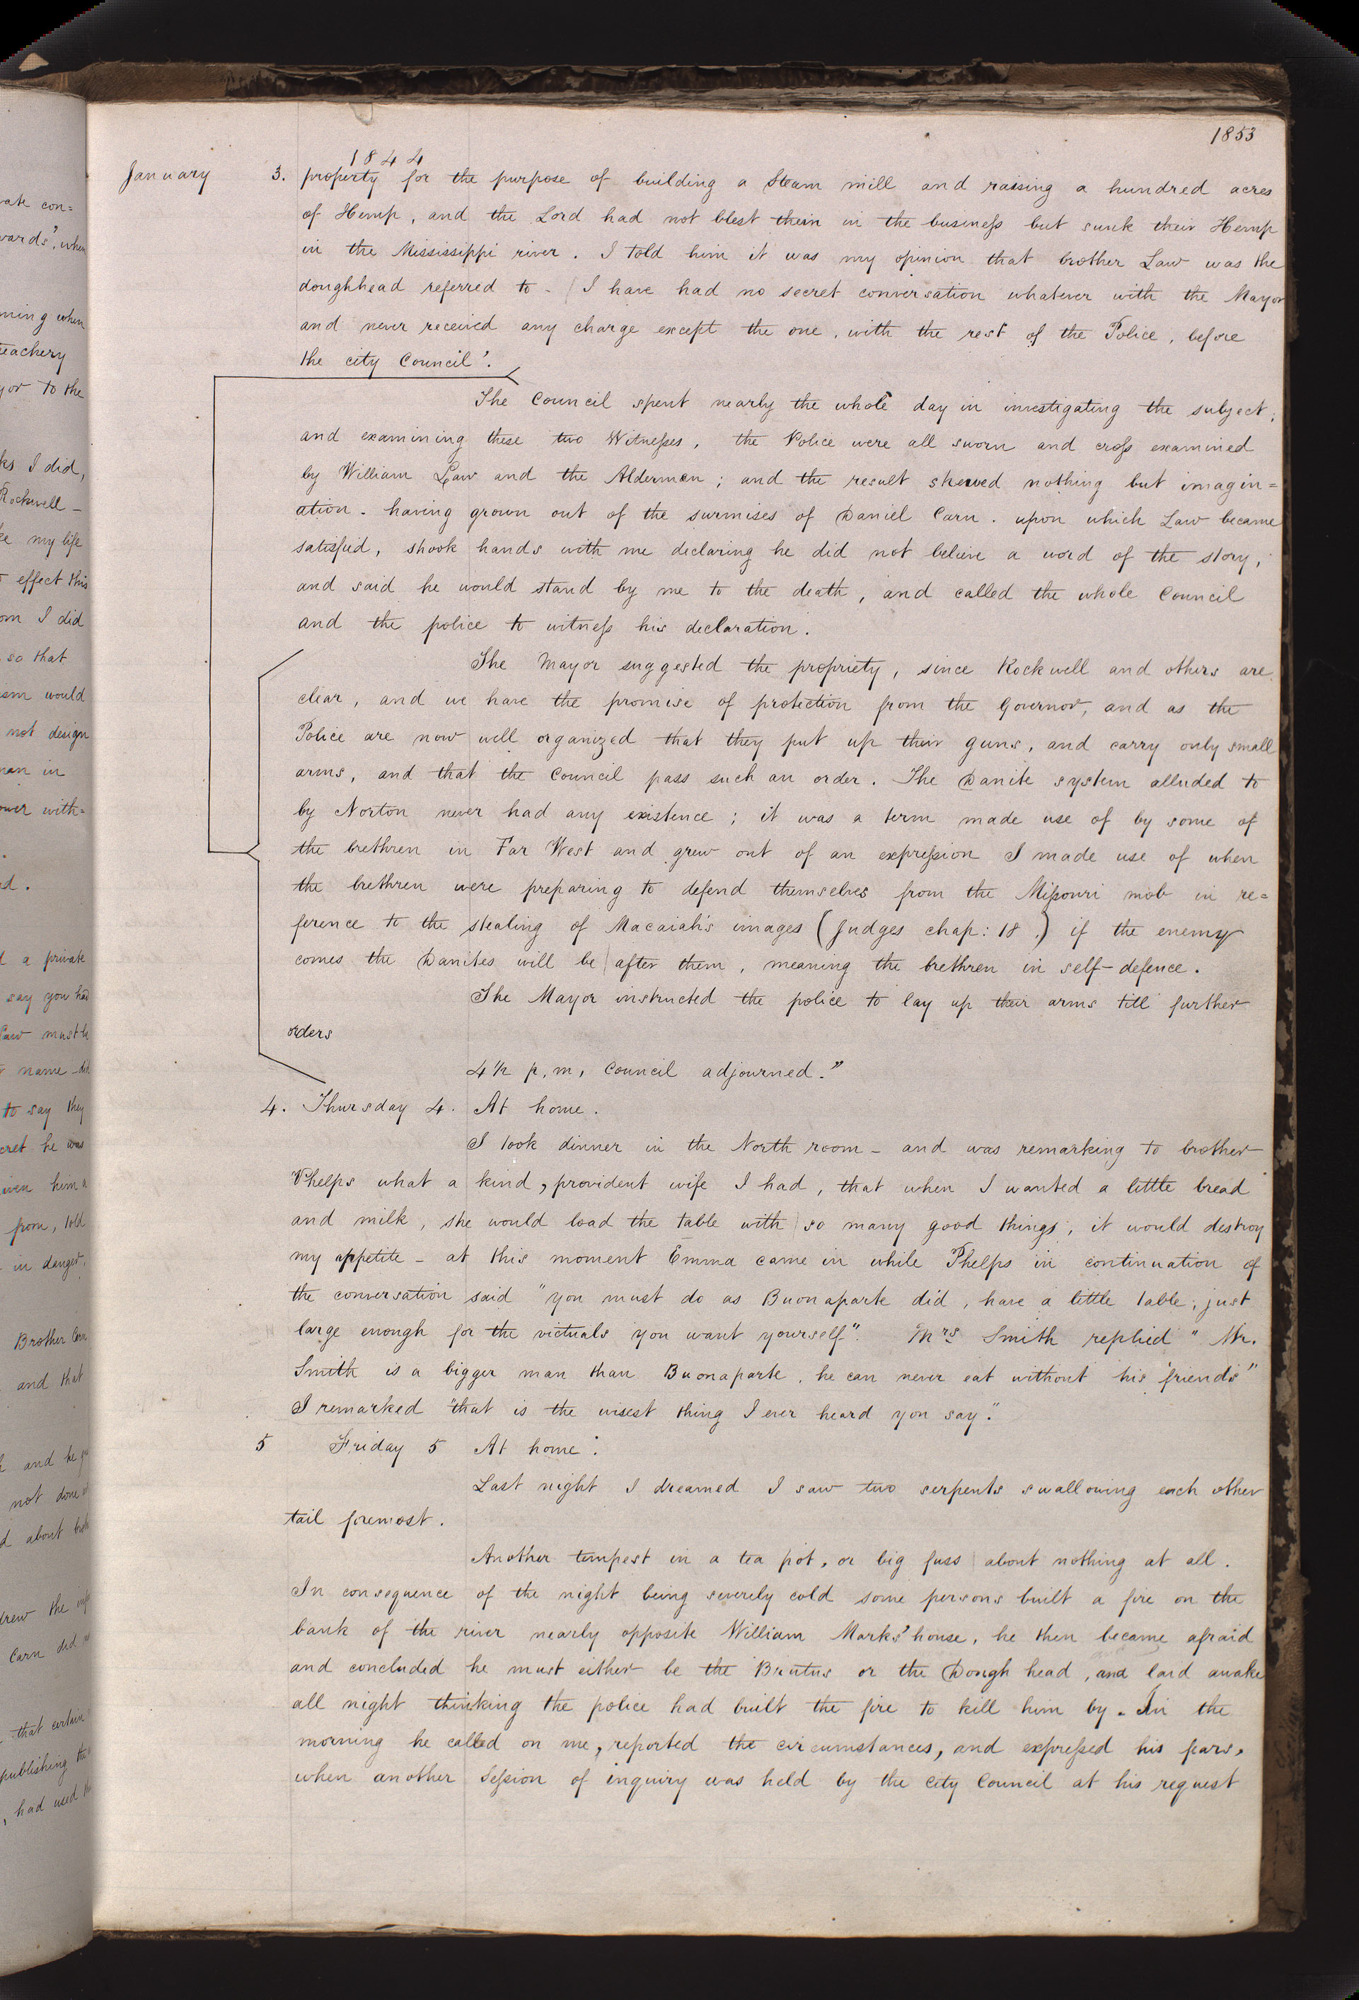 1853
1844
January 3. property for the purpose of building a Steam mill and raising a hundred acres
of Hemp, and the Lord had not blest them in the business but sunk their Hemp
in the Mississippi river. I told him it was my opinion that brother Law was the
doughhead referred to - I have had no secret conversation whatever with the Mayor
and never received any charge except the one, with the rest of the Police, before
the city Council'.
The Council spent nearly the whole day in investigating the subject,
and examining these two Witnesses, the Police were all sworn and cross examined
by William Law and the Aldermen; and the result shewed nothing but imagin=
ation - having grown out of the surmises of Daniel Carn. upon which Law became
satisfied, shook hands with me declaring he did not believe a word of the story,
and said he would stand by me to the death, and called the whole Council
and the police to witness his declaration.
The Mayor suggested the propriety, since Rockwell and others are
clear, and we have the promise of protection from the Governor, and as the
Police are now well organized that they put up their guns, and carry only small
arms, and that the Council pass such an order. The Danite system alluded to
by Norton never had any existence; it was a term made use of by some of
the brethren in Far West and grew out of an expression I made use of when
the brethren were preparing to defend themselves from the Missouri mob in re=
ference to the stealing of Macaiah's images (Judges chap: 18.) if the enemy
comes the Danites will be after them, meaning the brethren in self-defence.
The Mayor instructed the police to lay up their arms till further
orders
4½ p.m, Council adjourned."
4. Thursday 4. At home.
I took dinner in the North room - and was remarking to brother
Phelps what a kind, provident wife I had, that when I wanted a little bread
and milk, she would load the table with so many good things, it would destroy
my appetite - at this moment Emma came in while Phelps in continuation of
the conversation said "you must do as Buonaparte did, have a little table, just
large enough for the victuals you want yourself". Mrs Smith replied "Mr.
Smith is a bigger man than Buonaparte, he can never eat without his friends"
I remarked "that is the wisest thing I ever heard you say."
5 Friday 5 At home.
Last night I dreamed I saw two serpents swallowing each other
tail foremost.
Another tempest in a tea pot, or big fuss about nothing at all.
In consequence of the night being severely cold some persons built a fire on the
bank of the river nearly opposite William Marks' house, he then became afraid
and concluded he must either be the Brutus or the Dough head, and laid awake
all night thinking the police had built the fire to kill him by. In the
morning he called on me, reported the circumstances, and expressed his fears,
when another session of inquiry was held by the City Council at his request